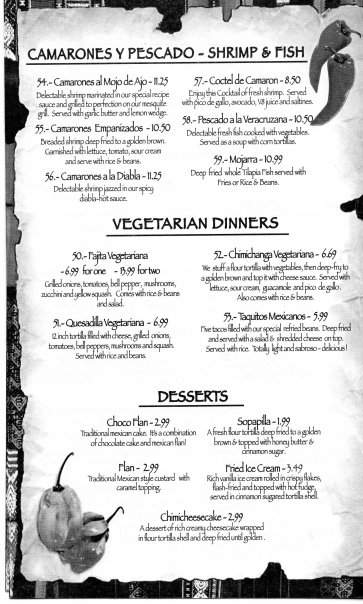 CAMARONES Y PESCADO - SHRIMP & FISH
54.- Camarones al Mojo de Ajo - 11.25
Delectable shrimp marinated in our special recipe
sauce and grilled to perfection on our mesquite
grill. Served with garlic butter and lemon wedge.
55.- Camarones Empanizados - 10.50
Breaded shrimp deep fried to a golden brown.
Garnished with lettuce, tomato, sour cream
and serve with rice & beans.
56.- Camarones a la Diabla - 11.25
Delectable shrimp jazzed in our spicy
diabla-hot sauce.
57.- Coctel de Camaron - 8.50
Enjoy this Cocktail of fresh shrimp. Served
with pico de gallo, avocado, V8 juice and saltines.
58.- Pescado a la Veracruzana - 10.50
Delectable fresh fish cooked with vegetables.
Served as a soup with corn tortillas.
59.- Mojarra - 10.99
Deep fried whole Tilapia Fish served with
Fries or Rice & Beans.
VEGETARIAN DINNERS
50.- Fajita Vegetariana
- 6.99 for one - 13.99 for two
Grilled onions, tomatoes, bell pepper, mushrooms,
zucchini and yellow squash. Comes with rice & beans
and salad.
51.- Quesadilla Vegetariana - 6.99
12 inch tortilla filled with cheese, grilled onions,
tomatoes, bell peppers, mushrooms and squash.
Served with rice and beans.
52.- Chimichanga Vegetariana - 6.69
We stuff a flour tortilla with vegetables, then deep-fry to
a golden brown and top it with cheese sauce. Served with
lettuce, sour cream, guacamole and pico de gallo.
Also comes with rice & beans.
53.- Taquitos Mexicanos - 5.99
Five tacos filled with our special refried beans. Deep fried
and served with a salad & shredded cheese on top.
Served with rice. Totally light and sabroso - delicious!
DESSERTS
Choco Flan - 2.99
Traditional mexican cake. It's a combination
of chocolate cake and mexican flan!
Flan - 2.99
Traditional Mexican style custard with
caramel topping.
Sopapilla - 1.99
A fresh flour tortilla deep fried to a golden
brown & topped with honey butter &
cinnamon sugar.
Fried Ice Cream - 3.49
Rich vanilla ice cream rolled in crispy flakes,
flash-fried and topped with hot fudge,
served in cinnamon sugared tortilla shell.
Chimicheesecake - 2.99
A dessert of rich creamy cheesecake wrapped
in flour tortilla shell and deep fried until golden .